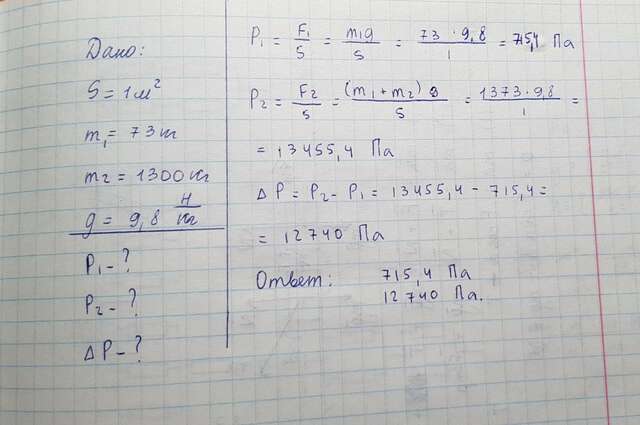 Дано:
S = 1 м²
m₁ = 73 кг
m₂ = 1300 кг
g = 9,8 Н/кг
P₁ - ?
P₂ - ?
ΔP - ?
P₁ = F₁/S = m₁g/S = 73 · 9,8/1 = 715,4 Па
P₂ = F₂/S = (m₁ + m₂) g/S = 1373 · 9,8/1 =
= 13455,4 Па
ΔP = P₂ - P₁ = 13455,4 - 715,4 =
= 12740 Па
Ответ: 715,4 Па
12740 Па.